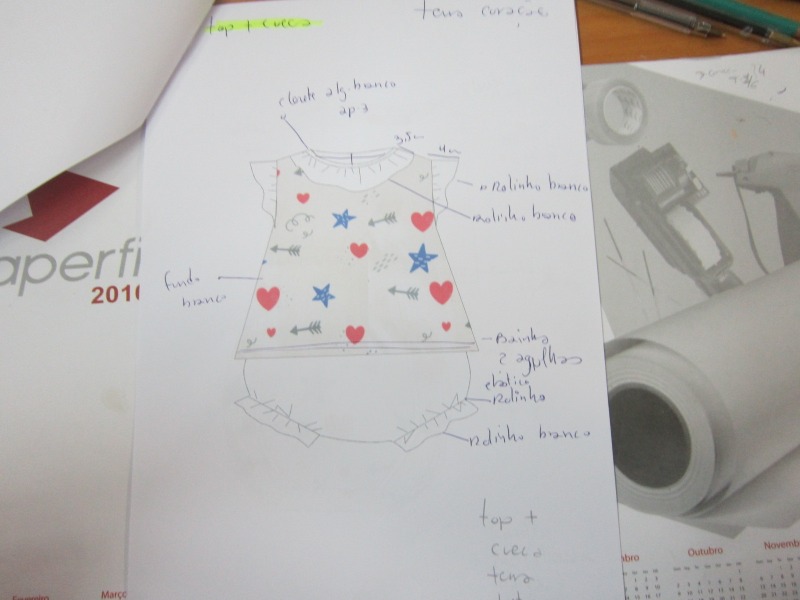 top + cueca
tema corações
clauté alg. branco
3,5cm
4cm
Rolinho branco
Rolinho branco
fundo
branco
Bainha
2 agulhas
elástico
Rolinho
Rolinho branco
top +
cueca
tema
aperfi
2016
Fevereiro
Março
Outubro
Novemb